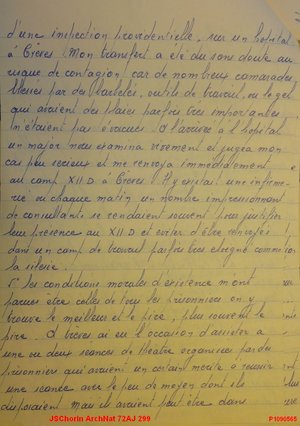 d'une infection providentielle, sur un hopital
à Trèves. Mon transfert a été du sans doute au
risque de contagion car de nombreux camarades
blessés par des barbelés, outils de travail, ou le gel
qui avaient des plaies parfois très importantes
n'étaient pas évacués. A l'arrivée à l'hopital
un major nous examina vivement et jugea mon
cas peu sérieux et me renvoya immédiatement
au camp XII D à Trèves. Il y existait une infirme-
rie ou chaque matin un nombre impressionnant
de consultants se rendaient souvent pour justifier
leur présence au XII D et éviter d'être renvoyés
dans un camp de travail parfois très éloigné comme
la silésie.
5° Les conditions morales d'existence m'ont
parues être celles de tous les prisonniers on y
trouve le meilleur et le pire, plus souvent le
pire. A Trèves ai eu l'occasion d'assister a
une ou deux séances de théatre organisées par des
prisonniers qui avaient un certain mérite a réussir
une séance avec le peu de moyen dont ils
disposaient. Mais ils avaient peut être dans
JSChorin ArchNat 72AJ 299
P1090565